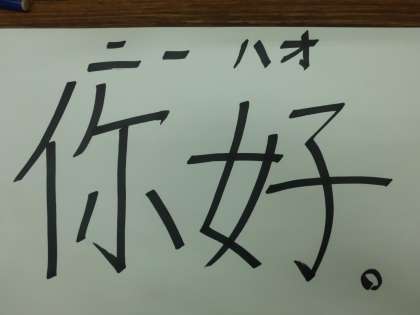 ニー ハオ
你好。